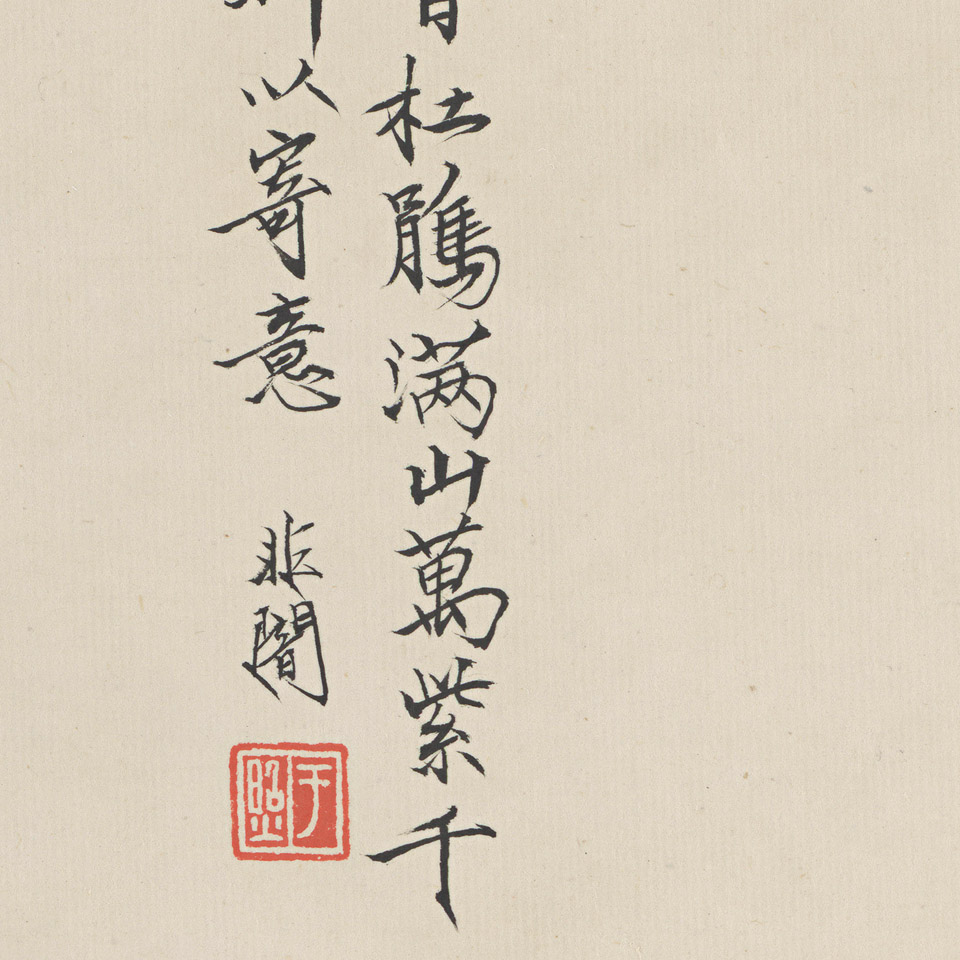 杜鵑满山萬紫千
以寄意
非闇
于照